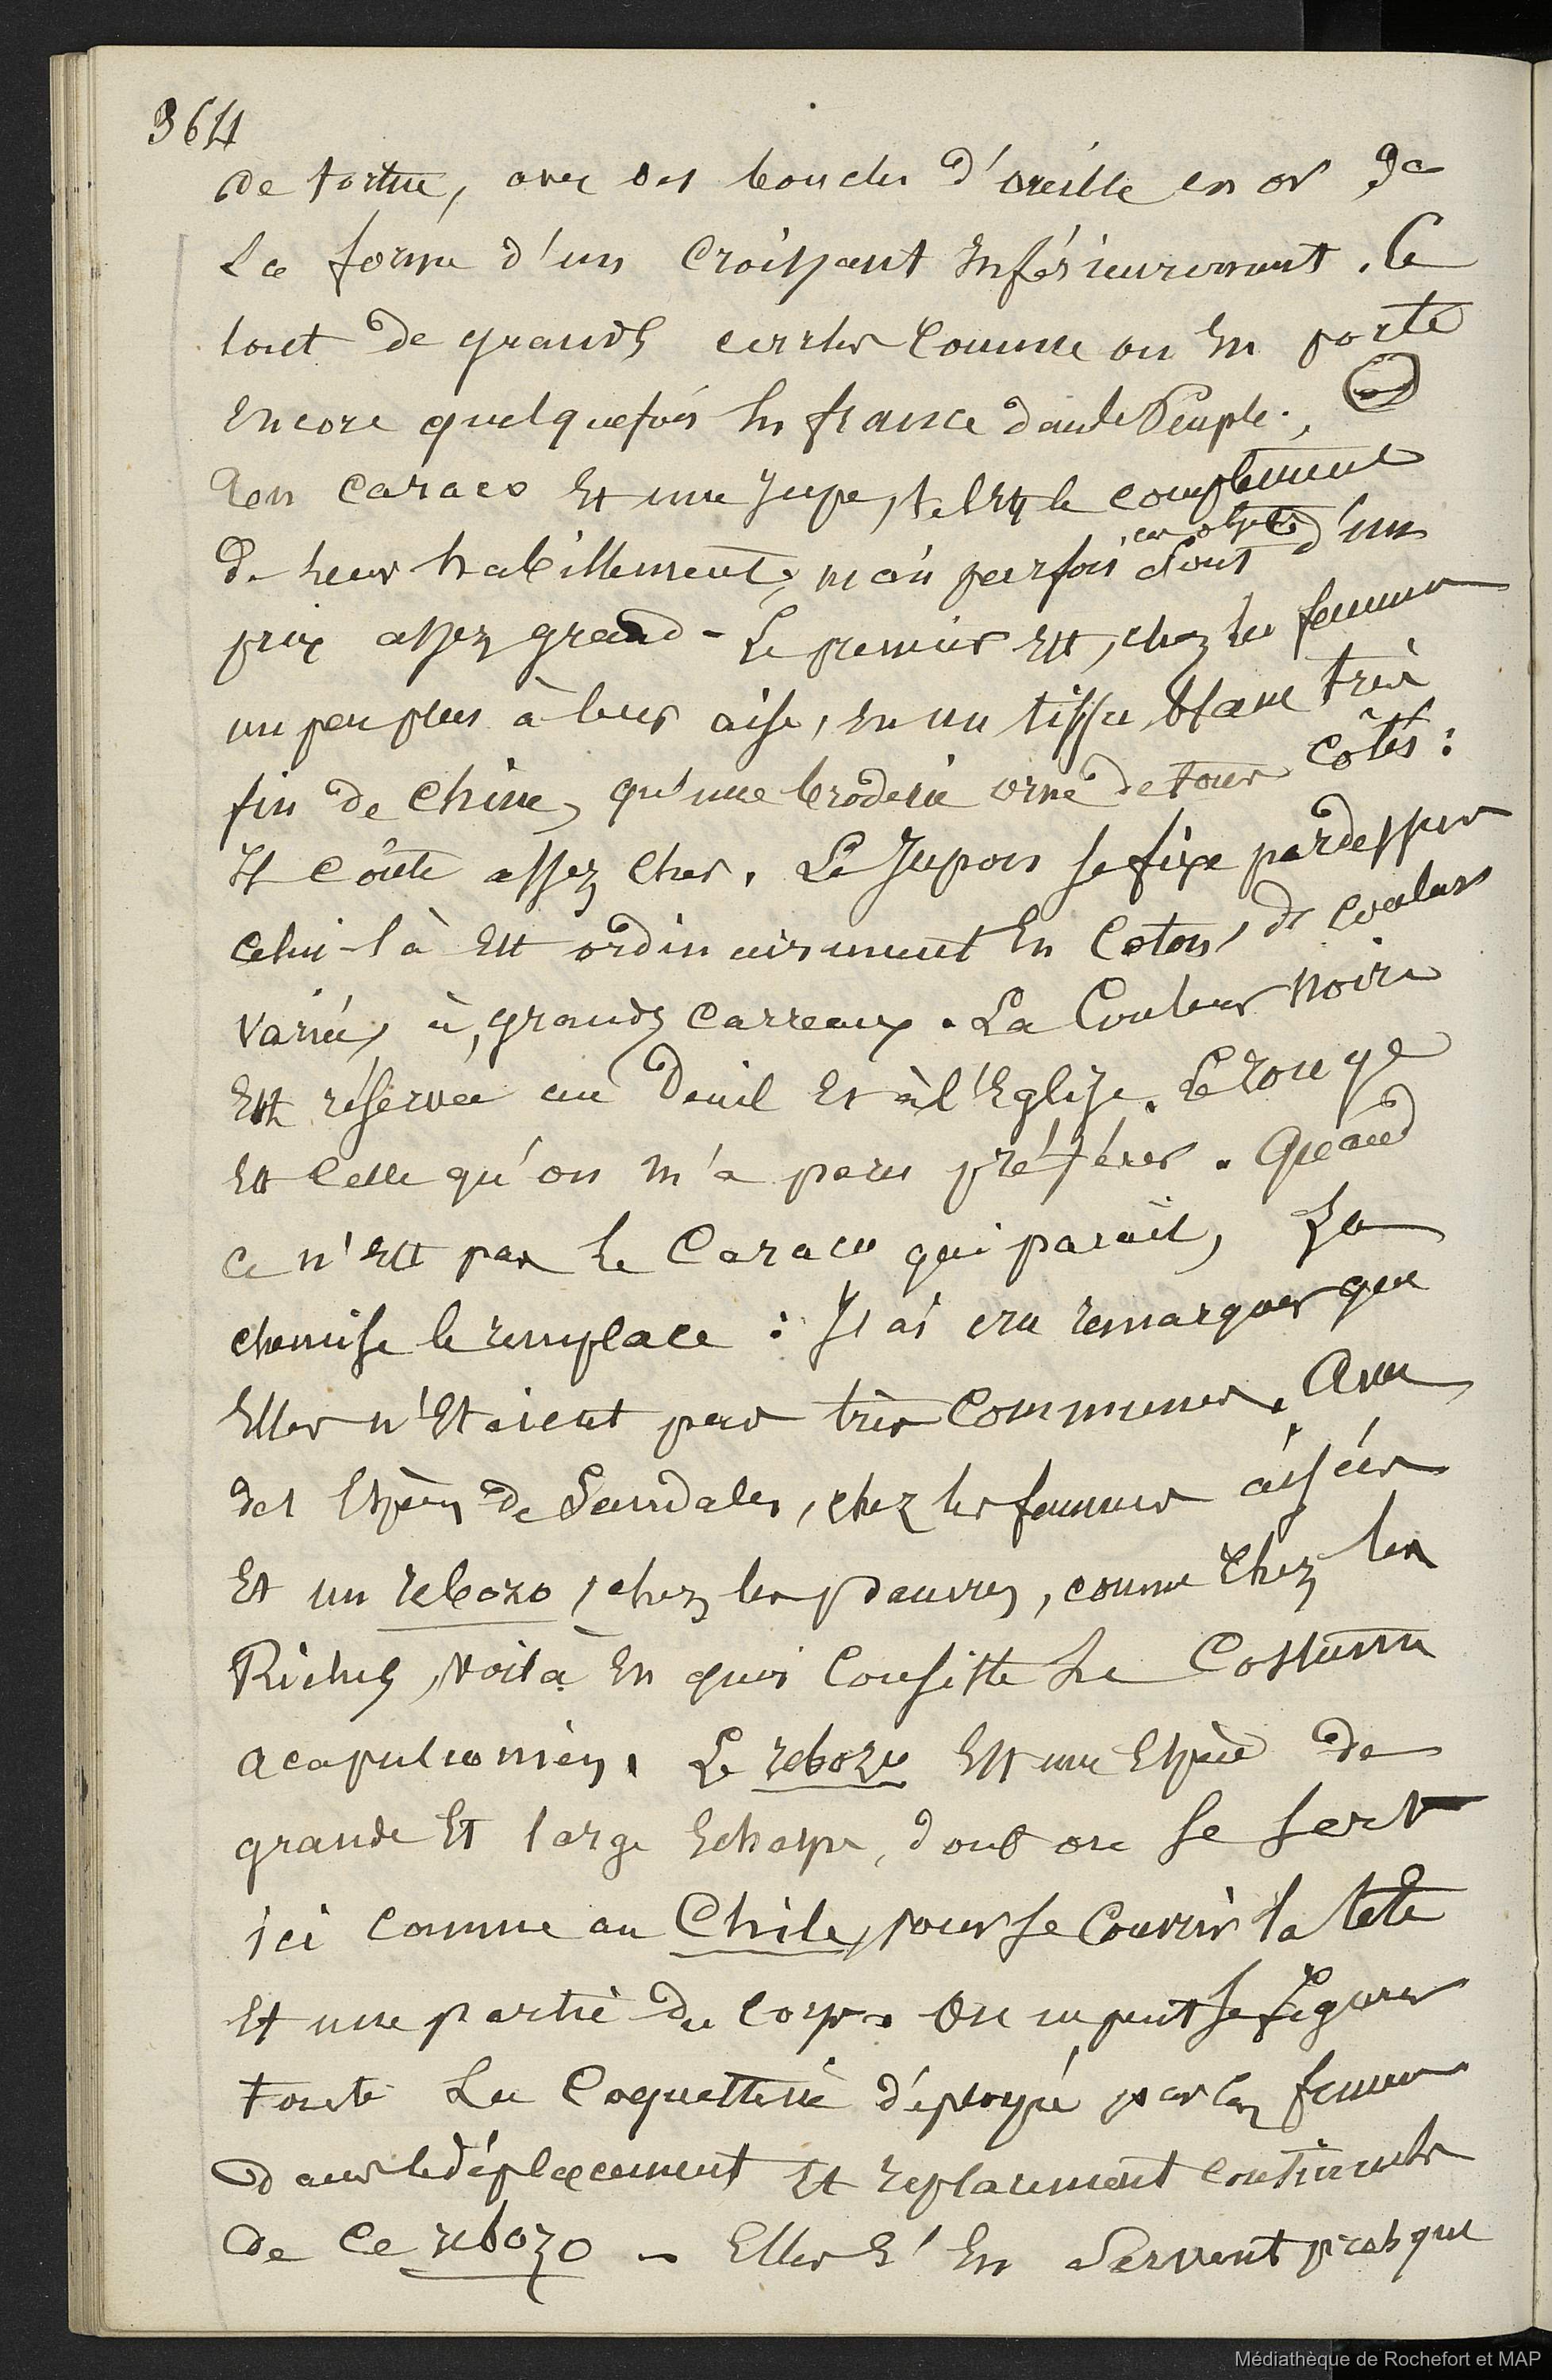 364
de tortue, avec des boucles d'oreille en or de
La forme d'un Croissant Inférieurement. Ce
sont de grands cercles Comme on En porte
Encore quelquefois En france dans le Peuple.
Un caraco Et une Jupe, tel Est le complément
de Leur habillement; mais parfois ces objets sont d'un
prix assez grand - Le premier Est, chez les femmes
un peu plus à leur aise, En un tissu blanc très
fin de Chine, qu'une broderie orne de tous Côtés :
Il Coûte assez Cher. Le Jupon se fixe pardessus
Celui-là Est ordinairement En Coton, de Couleurs
Variées, à grands Carreaux. La Couleur noire
Est réservée au Deuil Et à l'Eglise. Le rouge
Est Celle qu'on m'a paru préférer. Quand
Ce n'Est pas Le Caraco qui parait, La
chemise le remplace : J'ai cru remarquer que
Elles n'Etaient pas très Communes. Avec
des Espèces de Sandales, chez les femmes aisées
Et un rebozo, chez les pauvres, comme Chez les
Riches, Voilà En quoi Consiste Le Costume
acapulconien. Le rebozo Est une Espèce de
grande Et large Echarpe, dont on se sert
ici comme au Chile, pour se Couvrir la tête
Et une partie du Corps. On ne peut se figurer
toute La Coquetterie déployée par les femmes
dans le déplacement Et replacement Continuels
de Ce rebozo - Elles S'En Servent presque
Médiathèque de Rochefort et MAP